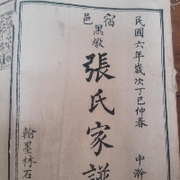 民國六年歲次丁巳仲春
宿邑
黑墩
張氏家譜
翰墨林石